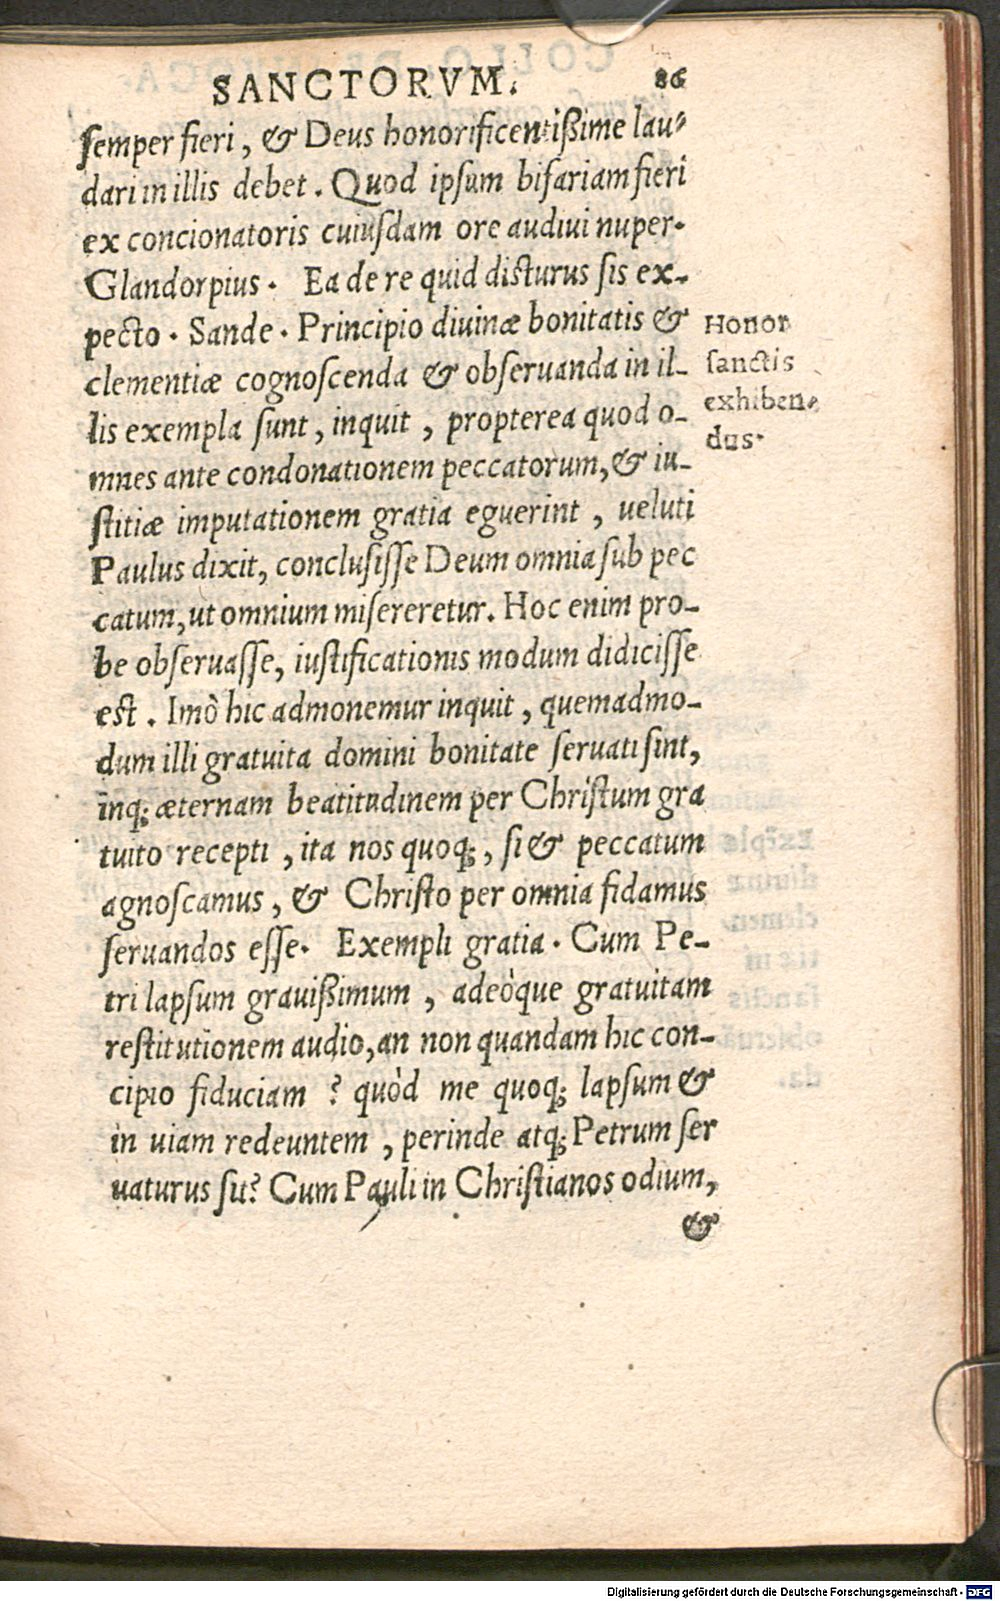 SANCTORVM. 86
semper fieri, & Deus honorificentißime lau-
dari in illis debet. Quod ipsum bifariam fieri
ex concionatoris cuiusdam ore audiui nuper.
Glandorpius. Ea de re quid dicturus sis ex-
pecto. Sande. Principio diuinæ bonitatis &
clementiæ cognoscenda & obseruanda in il-
lis exempla sunt, inquit, propterea quod o-
mnes ante condonationem peccatorum, & iu-
stitiæ imputationem gratia eguerint, ueluti
Paulus dixit, conclusisse Deum omnia sub pec
catum, ut omnium misereretur. Hoc enim pro-
be obseruasse, iustificationis modum didicisse
est. Imò hic admonemur inquit, quemadmo-
dum illi gratuita domini bonitate seruati sint,
inq; æternam beatitudinem per Christum gra
tuito recepti, ita nos quoq;, si & peccatum
agnoscamus, & Christo per omnia fidamus
seruandos esse. Exempli gratia. Cum Pe-
tri lapsum grauißimum, adeòque gratuitam
restitutionem audio, an non quandam hic con-
cipio fiduciam? quòd me quoq; lapsum &
in uiam redeuntem, perinde atq; Petrum ser
uaturus sit? Cum Pauli in Christianos odium,
&
Honor
sanctis
exhiben-
dus.
Digitalisierung gefördert durch die Deutsche Forschungsgemeinschaft - DFG